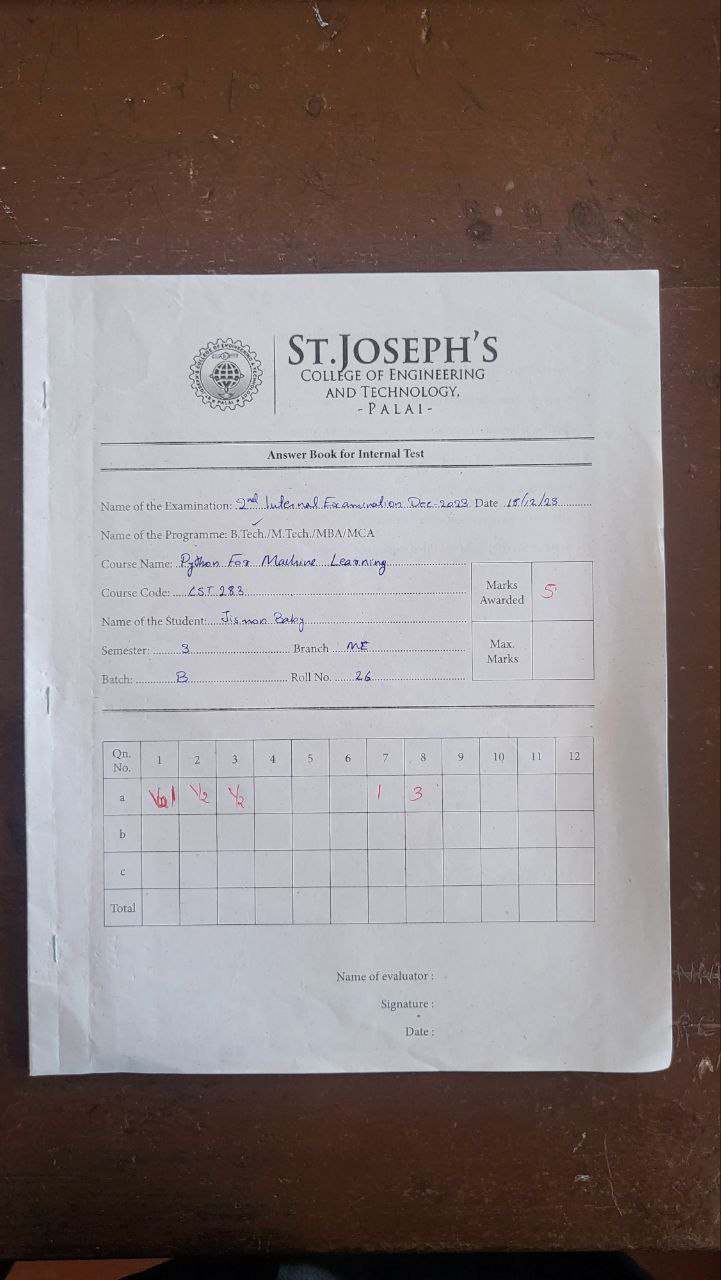 ST.JOSEPH'S
COLLEGE OF ENGINEERING
AND TECHNOLOGY,
- PALAI -
Answer Book for Internal Test
Name of the Examination: 2nd Internal Examination Dec-2023 Date 15/12/23
Name of the Programme: B.Tech./M.Tech./MBA/MCA
Course Name: Python For Machine Learning
Course Code: CST 283
Marks Awarded 5
Name of the Student: Jismon Baby
Semester: 3 Branch ME
Max. Marks
Batch: B Roll No. 26
Qn. No. 1 2 3 4 5 6 7 8 9 10 11 12
a 1 1/2 1/2 1 3
b
c
Total
Name of evaluator :
Signature :
Date :